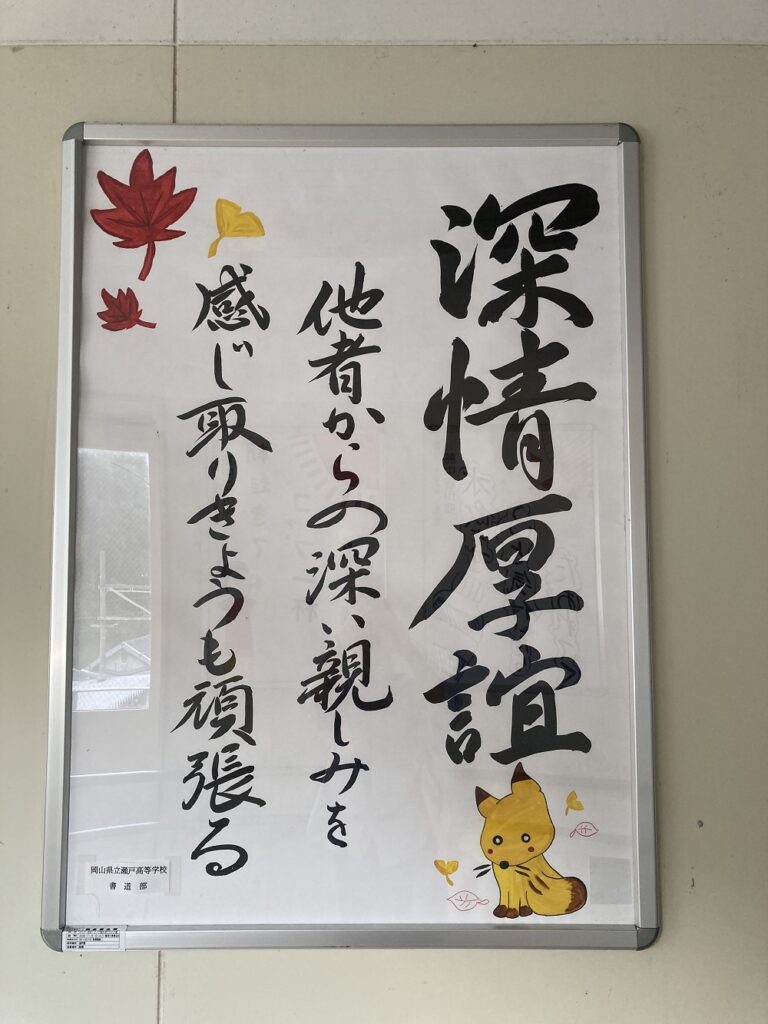 深情厚誼
他者からの深い親しみを
感じ取りきょうも頑張る
岡山県立瀬戸高等学校
書道部